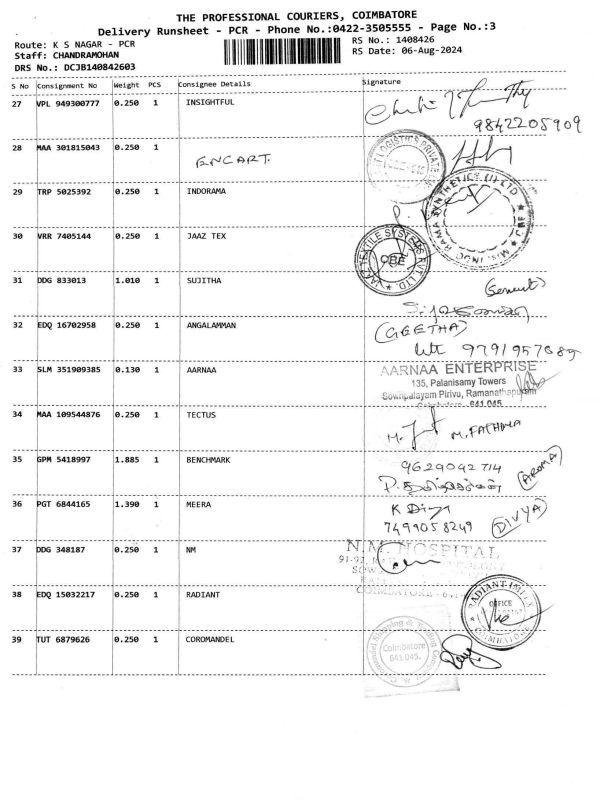 THE PROFESSIONAL COURIERS, COIMBATORE
Delivery Runsheet - PCR - Phone No.:0422-3505555 - Page No.:3
Route: K S NAGAR - PCR
RS No.: 1408426
Staff: CHANDRAMOHAN
RS Date: 06-Aug-2024
DRS No.: DCJB140842603
S No Consignment No Weight PCS Consignee Details Signature
27 VPL 949300777 0.250 1 INSIGHTFUL
9842205909
28 MAA 301815043 0.250 1 ENCART.
29 TRP 5025392 0.250 1 INDORAMA
30 VRR 7405144 0.250 1 JAAZ TEX
31 DDG 833013 1.010 1 SUJITHA
32 EDQ 16702958 0.250 1 ANGALAMMAN
(GEETHA)
33 SLM 351909385 0.130 1 AARNAA
AARNAA ENTERPRISE
135, Palanisamy Towers
Sowripalayam Pirivu, Ramanathapuram
Coimbatore - 641 045
34 MAA 109544876 0.250 1 TECTUS
M. FATHIMA
35 GPM 5418997 1.885 1 BENCHMARK
9629092714
(AROMA)
36 PGT 6844165 1.390 1 MEERA
K Divya
7499058249 (DIVYA)
37 DDG 348187 0.250 1 NM
N.M. HOSPITAL
38 EDQ 15032217 0.250 1 RADIANT
RADIANT IMPEX
OFFICE
COIMBATORE
39 TUT 6879626 0.250 1 COROMANDEL
Coimbatore
641 045.